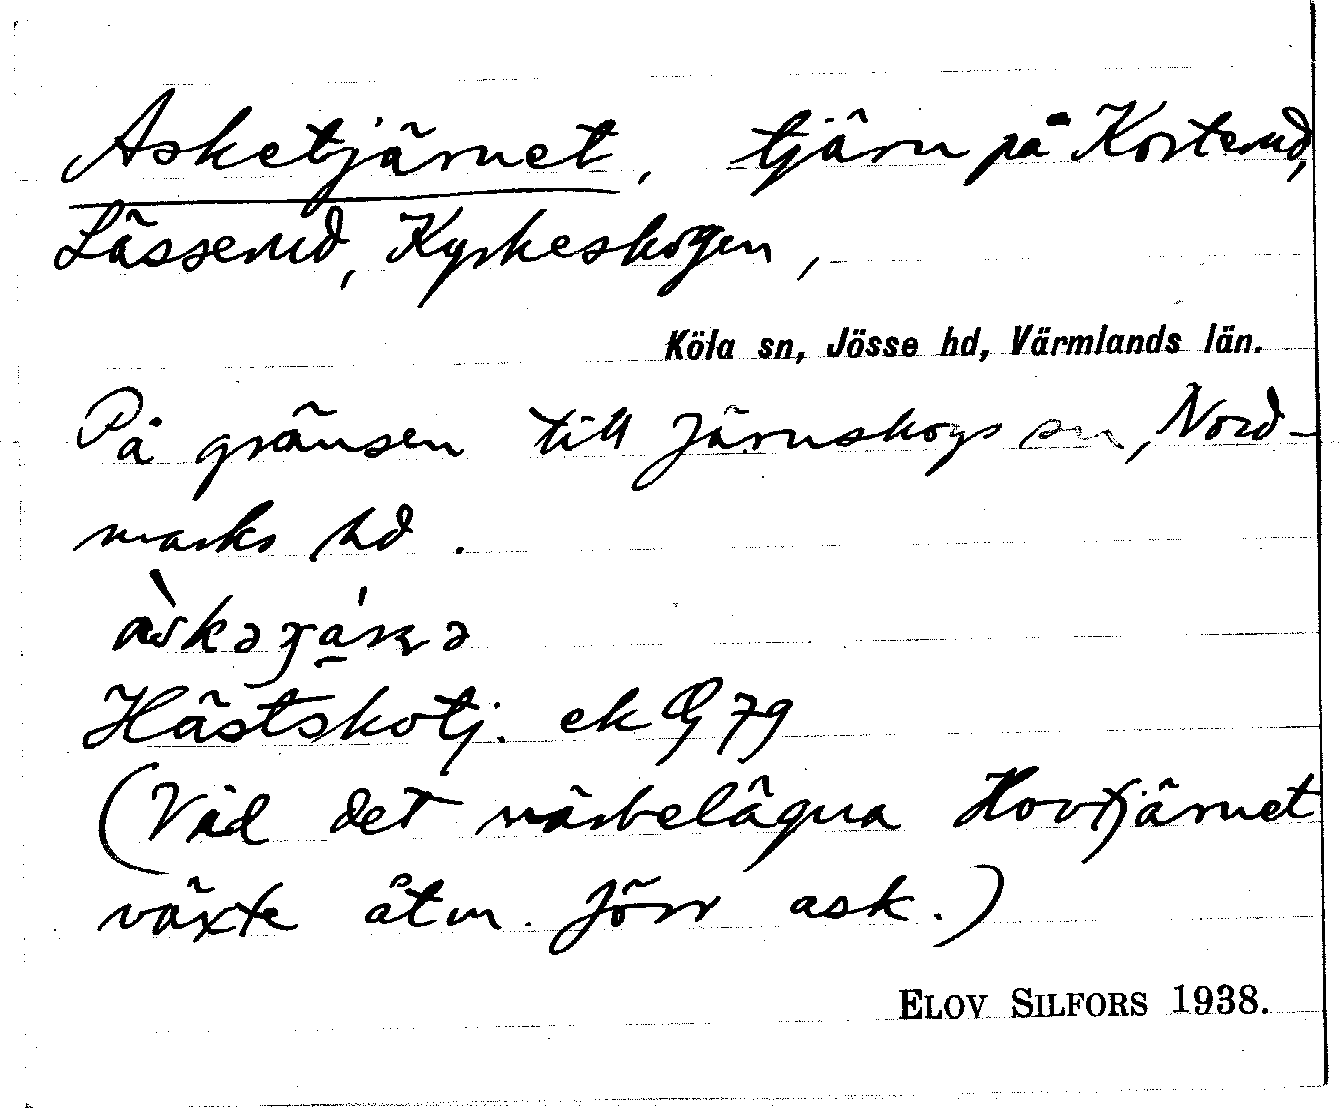 Asketjärnet, tjärn på Korterud,
Lässerud, Kyrkeskogen,
Köla sn, Jösse hd, Värmlands län.
På gränsen till Järnskogs sn, Nord-
marks hd.
Hästskotj. ek G 79
(Vid det närbelägna Hovtjärnet
växte åtm. förr ask.)
ELOV SILFORS 1938.